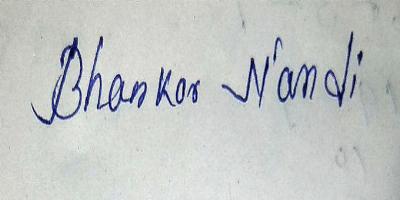 Bhaskar Nandi